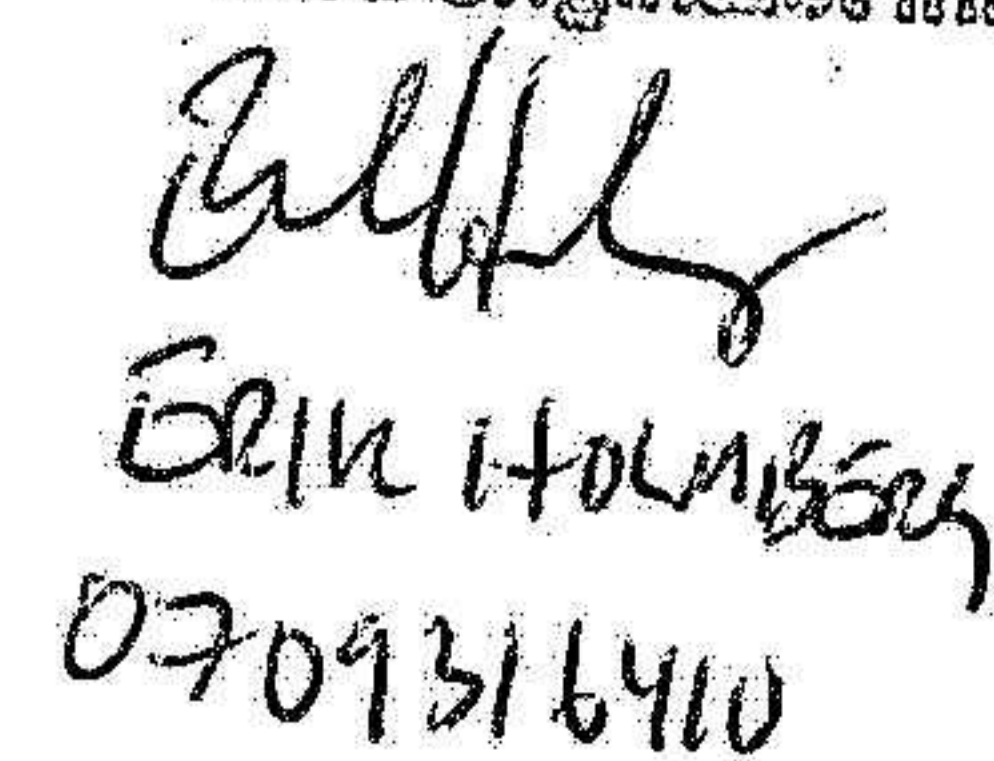 ERIK HOLMBERG
0709316410